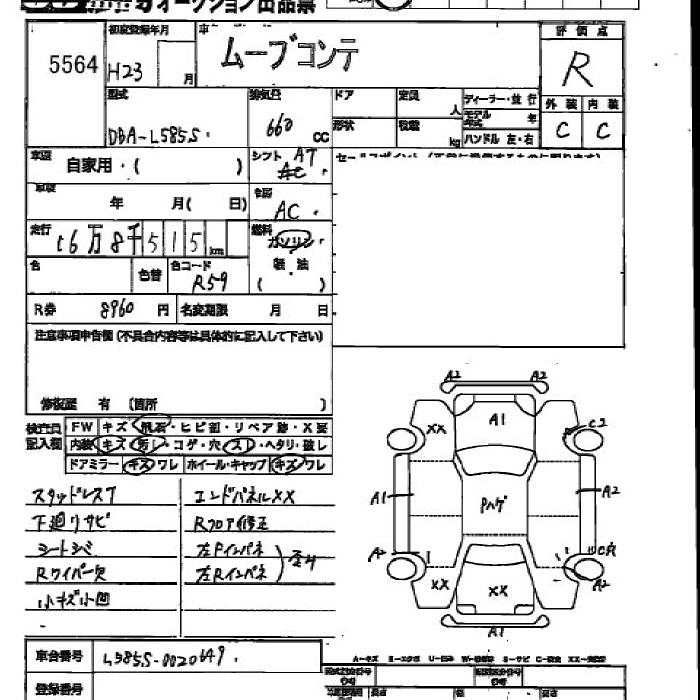 オークション出品票
5564
初度登録年月
H23
月
車
ムーブコンテ
評価点
R
型式
DBA-L585S
排気量
660 CC
ドア
定員
人
ディーラー・並行
モデル
年式
年
外装
内装
C
C
形状
積載
kg
ハンドル 左・右
車歴
自家用・( )
シフト AT
AC
セールスポイント
車検
年 月( 日)
冷房
AC
走行
16万8千515 km
燃料
ガソリン
軽油
( )
色
色替
色コード
R59
R券 8960 円
名変期限 月 日
注意事項申告欄(不具合内容等は具体的に記入して下さい)
修復歴 有 〔箇所 〕
検査員
記入欄
FW キズ・飛石・ヒビ割・リペア跡・X要
内装 キズ・汚レ・コゲ・穴・スレ・ヘタリ・破レ
ドアミラー キズ・ワレ ホイール・キャップ キズ・ワレ
スタッドレスT
下廻リサビ
シートシミ
Rワイパー欠
小キズ小凹
エンドパネルXX
Rフロア修正
左Fインパネ
左Rインパネ
歪み
A2 A2
XX A1 C2
A1 Pハゲ A2
A2 C穴
XX XX A2
A1
車台番号
L585S-0020649
登録番号